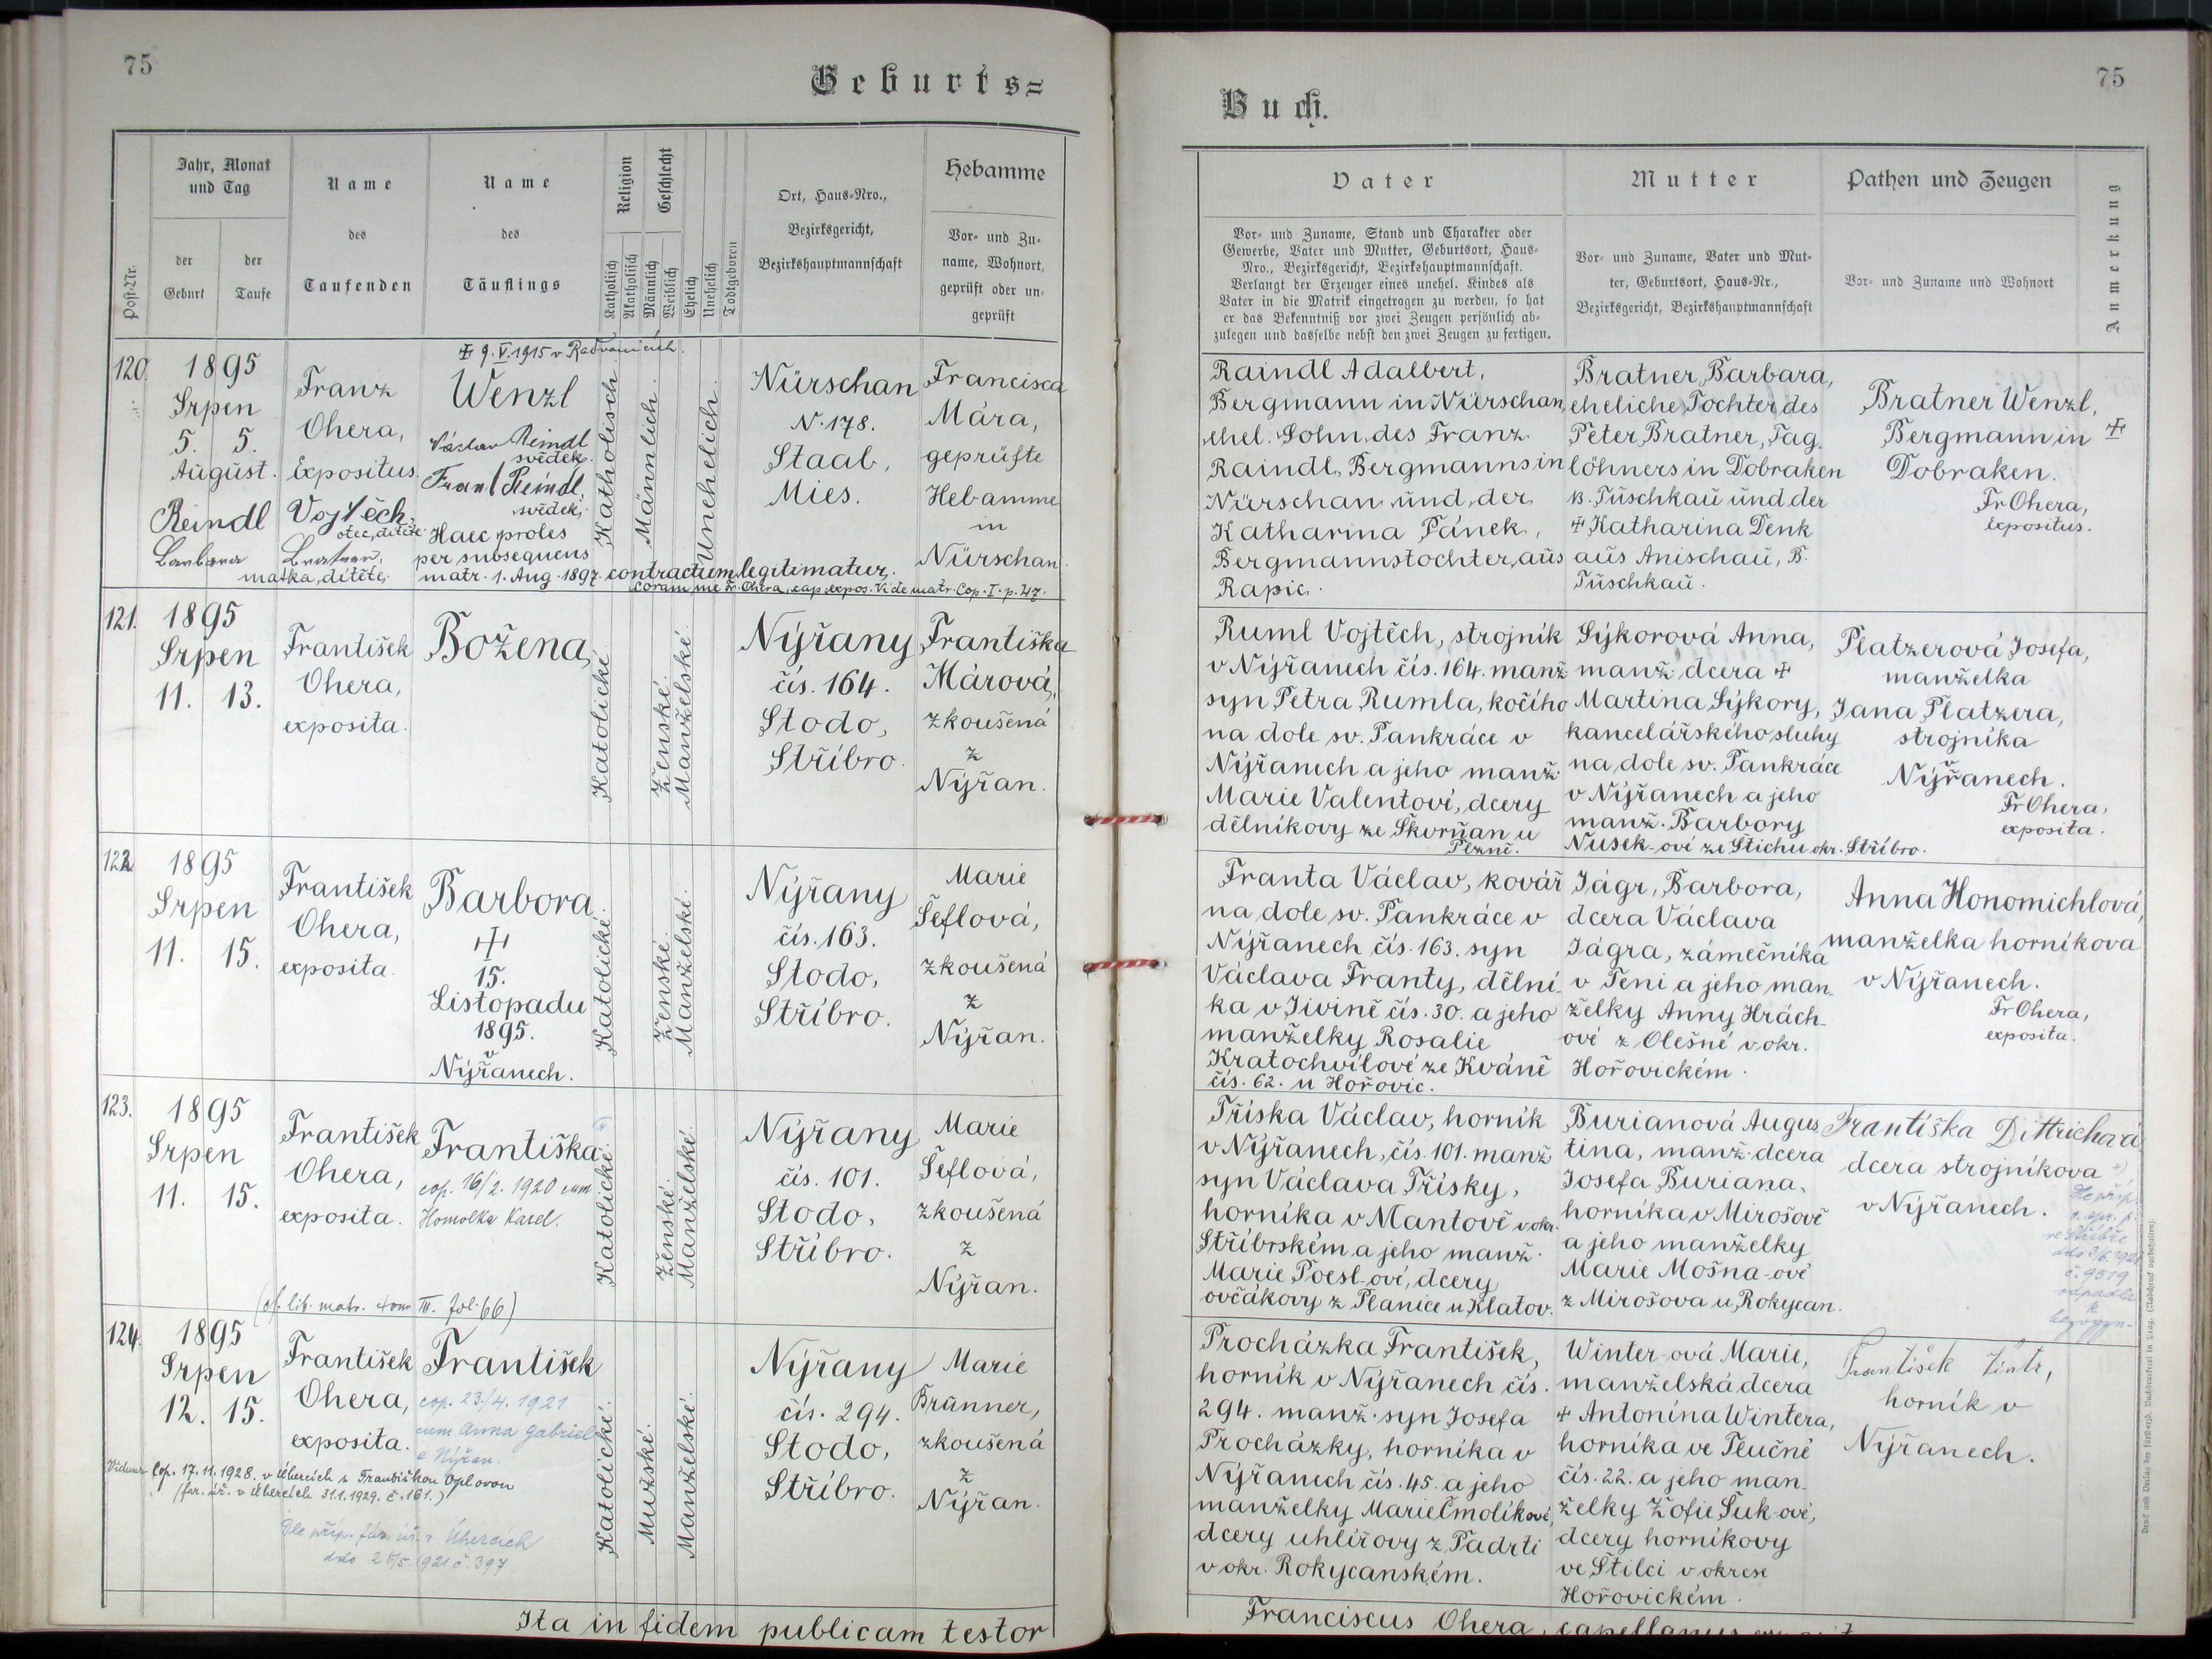 75
Geburts=
Jahr, Monat
und Tag
der
Geburt
der
Taufe
Post-Nr.
Name
des
Taufenden
Name
des
Täuflings
Religion
Katholisch
Akatholisch
Geschlecht
Männlich
Weiblich
Ehelich
Unehelich
Todtgeboren
Ort, Haus-Nro.,
Bezirksgericht,
Bezirkshauptmannschaft
Hebamme
Vor- und Zu-
name, Wohnort,
geprüft oder un-
geprüft
120.
1895
Srpen
5. 5.
August.
Franz
Ohera,
Expositus.
Reindl Vojtěch,
otec, dítěte.
Barbara Bratner,
matka, dítěte,
✠ 9. V. 1915 v Radvanicích.
Wenzl
Václav Reindl
svědek.
Franz Reindl,
svědek,
Haec proles
per subsequens
matr. 1. Aug. 1897 contractum legitimatur.
coram me Fr. Ohera, cap. expos. Vide matr. Cop. I. p. 47.
Katholisch
Männlich.
Unehelich.
Nürschan
N. 178.
Staab,
Mies.
Francisca
Mára,
geprüfte
Hebamme
in
Nürschan.
121.
1895
Srpen
11. 13.
František
Ohera,
exposita.
Božena,
Katolické.
Ženské.
Manželské.
Nýřany
čís. 164.
Stodo,
Stříbro.
Františka
Márová,
zkoušená
z
Nýřan.
122.
1895
Srpen
11. 15.
František
Ohera,
exposita.
Barbora
✠
15.
Listopadu
1895.
v
Nýřanech.
Katolické.
Ženské.
Manželské.
Nýřany
čís. 163.
Stodo,
Stříbro.
Marie
Šeflová,
zkoušená
z
Nýřan.
123.
1895
Srpen
11. 15.
František
Ohera,
exposita.
Františka
cop. 16/2. 1920 cum
Homolka Karel.
(cf. lib. matr. tom III. fol. 66)
Katolické.
Ženské.
Manželské.
Nýřany
čís. 101.
Stodo,
Stříbro.
Marie
Šeflová,
zkoušená
z
Nýřan.
124.
1895
Srpen
12. 15.
František
Ohera,
exposita.
František
cop. 23./4. 1921
cum Anna Gabriel
e Nýřan.
Cop. 17. 11. 1928. v Úhercích s Františkou Oplovou
(far. úř. v Úhercích 31.1.1929. č. 161.)
Dle příp. far. úř. v Úhercích
ddo 25/5. 1921 č. 397
Katolické.
Mužské.
Manželské.
Nýřany
čís. 294.
Stodo,
Stříbro.
Marie
Brünner,
zkoušená
z
Nýřan.
Ita in fidem publicam testor
75
Buch.
Vater
Vor- und Zuname, Stand und Charakter oder
Gewerbe, Vater und Mutter, Geburtsort, Haus-
Nro., Bezirksgericht, Bezirkshauptmannschaft.
Verlangt der Erzeuger eines unehel. Kindes als
Vater in die Matrik eingetragen zu werden, so hat
er das Bekenntniß vor zwei Zeugen persönlich ab-
zulegen und dasselbe nebst den zwei Zeugen zu fertigen.
Mutter
Vor- und Zuname, Vater und Mut-
ter, Geburtsort, Haus-Nr.,
Bezirksgericht, Bezirkshauptmannschaft
Pathen und Zeugen
Vor- und Zuname und Wohnort
Anmerkung
Raindl Adalbert,
Bergmann in Nürschan,
ehel. Sohn, des Franz
Raindl, Bergmanns in
Nürschan und, der
Katharina Pánek,
Bergmannstochter, aus
Rapic.
Bratner, Barbara,
eheliche, Tochter, des
Peter, Bratner, Tag.
löhners in Dobraken
B. Tuschkau und der
✠ Katharina Denk
aus Anischau, B.
Tuschkau.
Bratner Wenzl,
Bergmann in
Dobraken.
Fr Ohera,
expositus.
✠
Ruml Vojtěch, strojník
v Nýřanech čís. 164. manž
syn Petra Rumla, kočího
na dole sv. Pankráce v
Nýřanech a jeho manž.
Marie Valentoví, dcery
dělníkovy ze Škvrňan u
Plzně.
Sýkorová Anna,
manž, dcera ✠
Martina Sýkory,
kancelářského sluhy
na, dole sv. Pankráce
v Nýřanech a jeho
manž. Barbory
Nusek-ové ze Štichu okr. Stříbro.
Platzerová Josefa,
manželka
Jana Platzera,
strojníka
v
Nýřanech.
Fr Ohera,
exposita.
Franta Václav, kovář
na, dole sv. Pankráce v
Nýřanech čís. 163. syn
Václava Franty, dělní-
ka v Jivině čís. 30. a jeho
manželky Rosalie
Kratochvílové ze Kváně
čís. 62. u Hořovic.
Jágr, Barbora,
dcera Václava
Jágra, zámečníka
v Teni a jeho man-
želky Anny Hrách-
ové z Olešné v okr.
Hořovickém.
Anna Honomichlová,
manželka horníkova
v Nýřanech.
Fr Ohera,
exposita.
Tříska Václav, horník
v Nýřanech, čís. 101. manž
syn Václava Třísky,
horníka v Mantově v okr.
Stříbrském a jeho manž.
Marie Poesl-ové, dcery
ovčákovy z Planice u Klatov.
Burianová Augus
tina, manž. dcera
Josefa Buriana,
horníka v Mirošově
a jeho manželky
Marie Mošna-ové
z Mirošova u Rokycan.
Františka Dittrichová
dcera strojníkova
v Nýřanech.
Dle příp.
ve Stříbře
ddo 3/6. 1921
č. 9519
odpadla
Procházka František,
horník v Nýřanech čís.
294. manž. syn Josefa
Procházky, horníka v
Nýřanech čís. 45. a jeho
manželky Marie Čmolíkové,
dcery uhlířovy z Padrti
v okr. Rokycanském.
Winter-ová Marie,
manželská dcera
✠ Antonína Wintera,
horníka ve Tlučné
čís. 22. a jeho man-
želky Žofie Šuk-ové,
dcery horníkovy
ve Štilci v okrese
Hořovickém.
František
horník v
Nýřanech.
Franciscus Ohera, capellanus